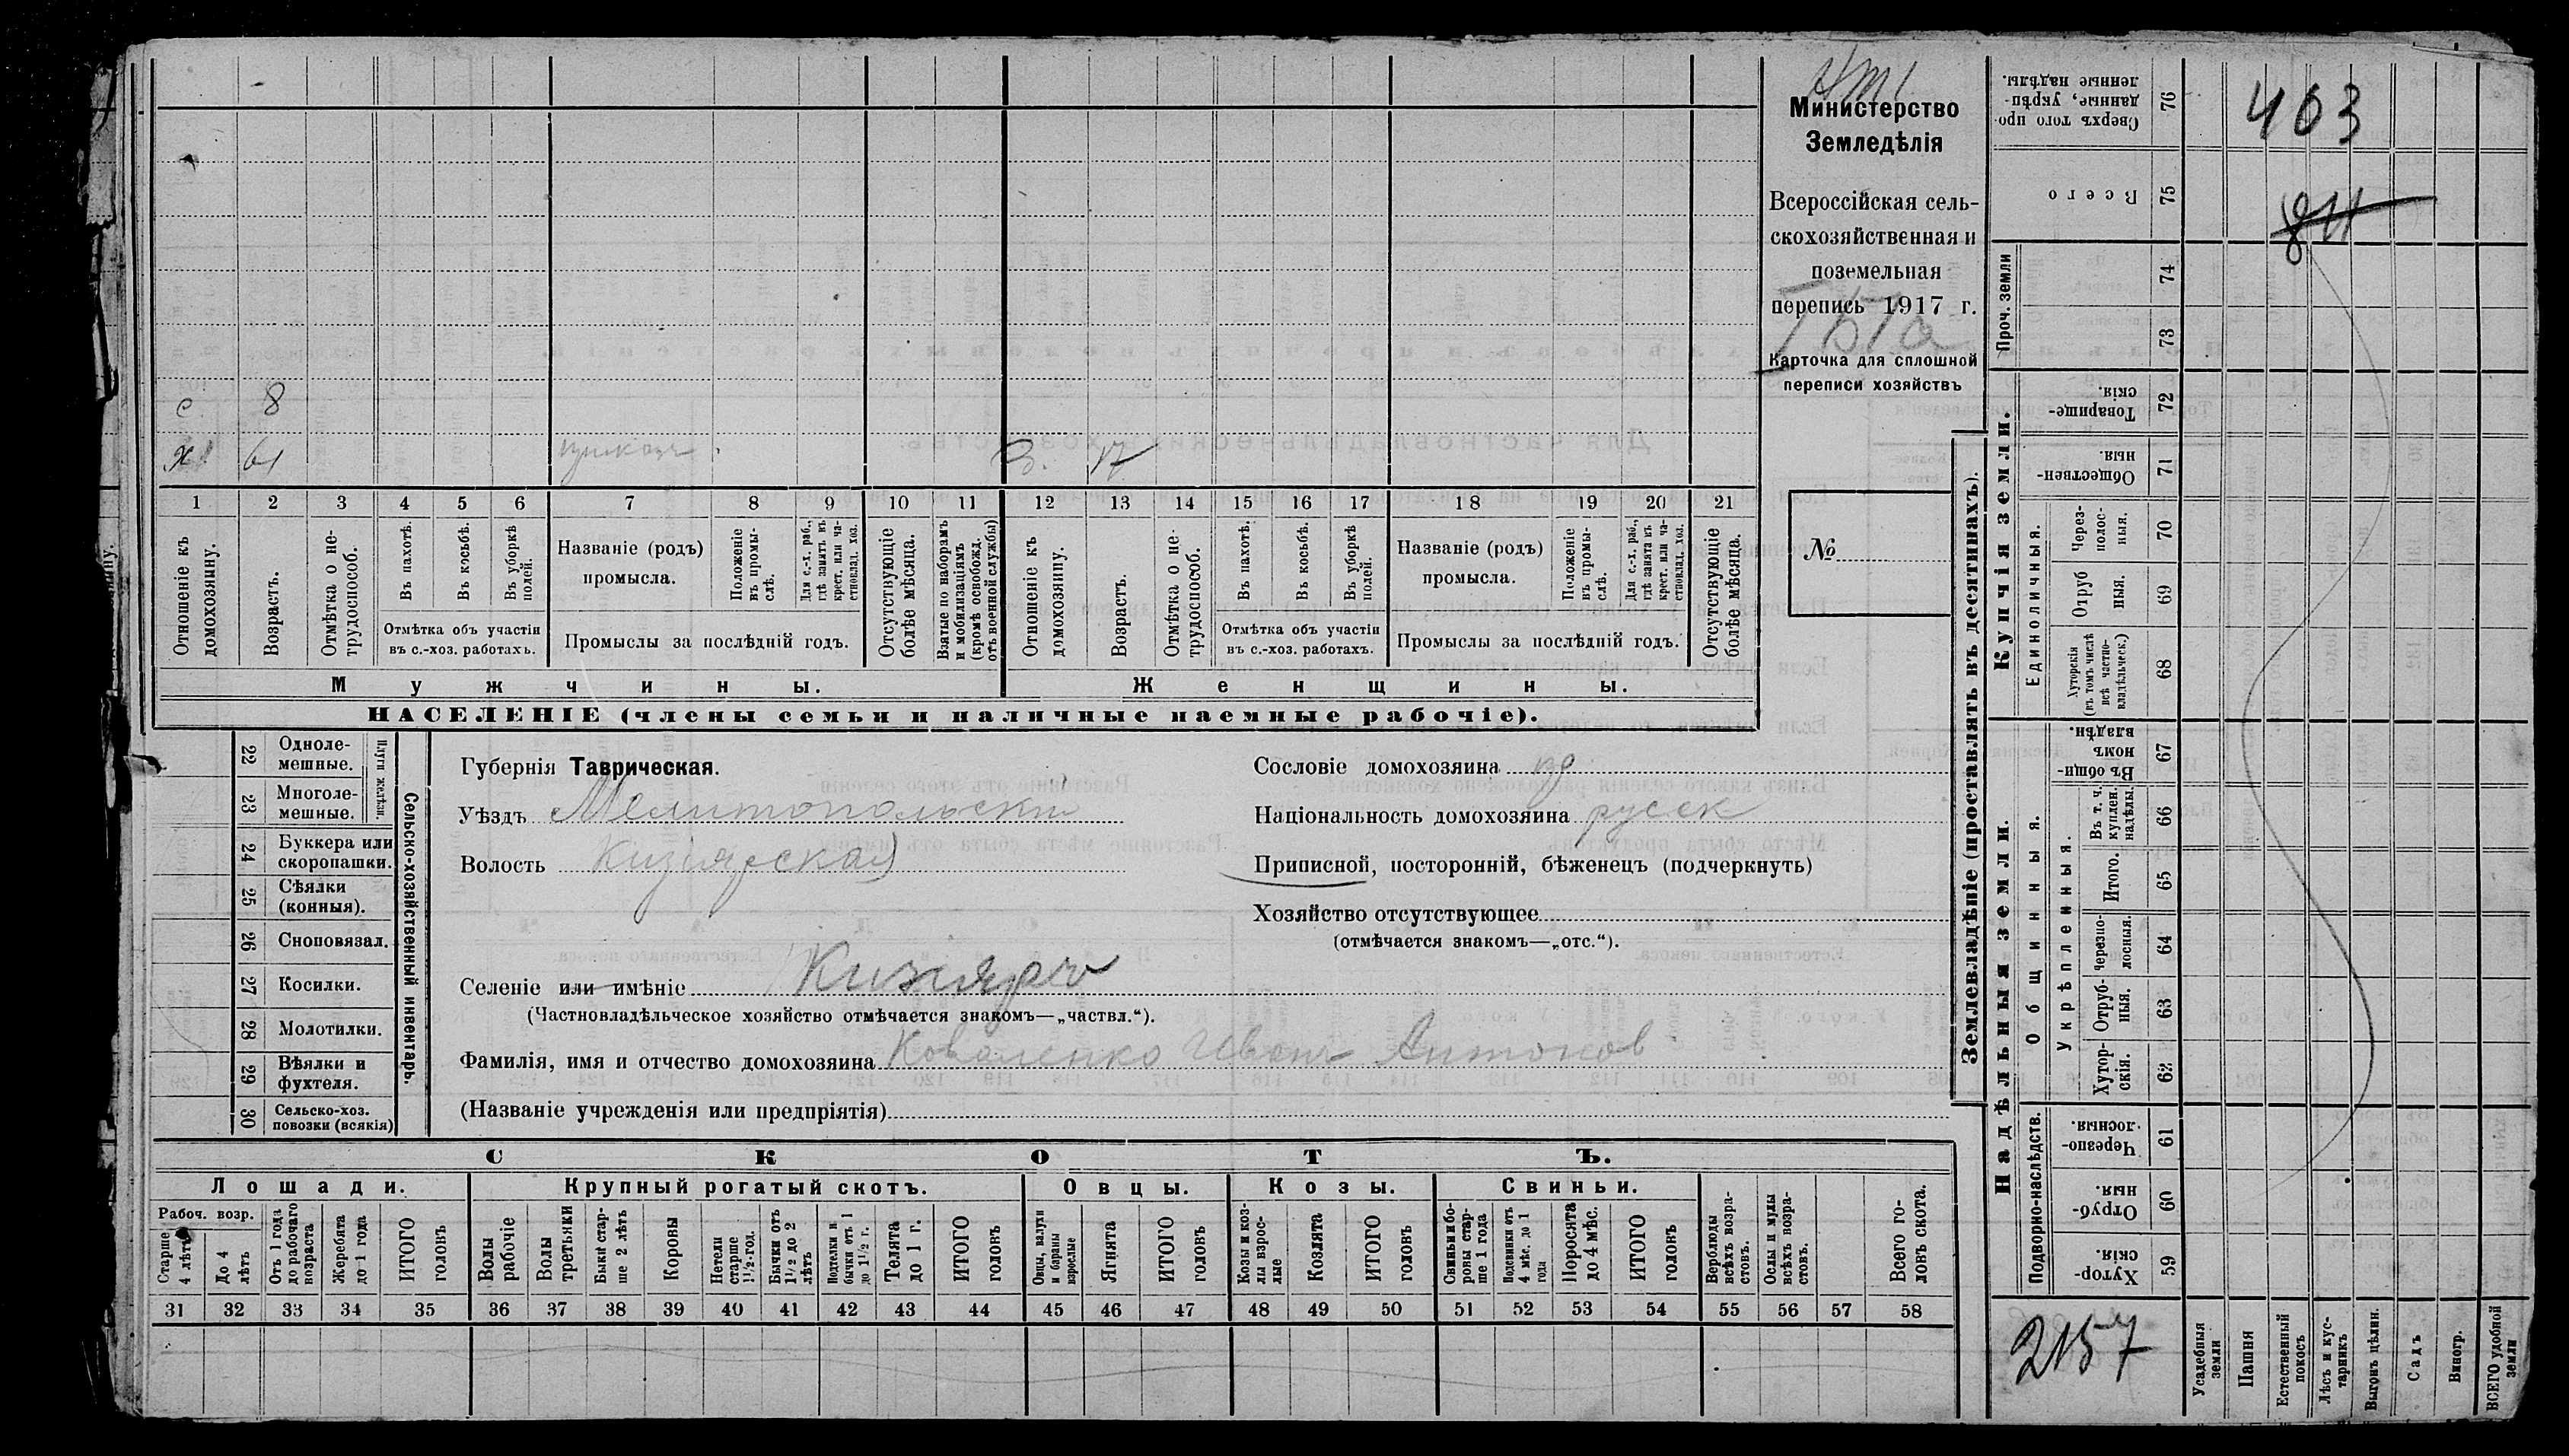 Министерство
Земледѣлія
Всероссійская сель-
скохозяйственная и
поземельная
перепись 1917 г.
Карточка для сплошной
переписи хозяйствъ
№
с 8
х 61
З. 17
1 2 3 4 5 6 7 8 9 10 11 12 13 14 15 16 17 18 19 20 21
Отношеніе къ домохозяину.
Возрастъ.
Отмѣтка о не-трудоспособ.
Въ пахотѣ.
Въ косьбѣ.
Въ уборкѣ полей.
Отмѣтка объ участіи
въ с.-хоз. работахъ.
Названіе (родъ)
промысла.
Положеніе въ промы-слѣ.
Для с.-х. раб., гдѣ занятъ въ крест. или ча-стновлад. хоз.
Промыслы за послѣдній годъ.
Отсутствующіе болѣе мѣсяца.
Взятые по наборамъ и мобилизаціямъ (кромѣ освобожд. отъ военной службы)
Отношеніе къ домохозяину.
Возрастъ.
Отмѣтка о не-трудоспособ.
Въ пахотѣ.
Въ косьбѣ.
Въ уборкѣ полей.
Отмѣтка объ участіи
въ с.-хоз. работахъ.
Названіе (родъ)
промысла.
Положеніе въ промы-слѣ.
Для с.-х. раб., гдѣ занята въ крест. или ча-стновлад. хоз.
Промыслы за послѣдній годъ.
Отсутствующіе болѣе мѣсяца.
Мужчины.
Женщины.
НАСЕЛЕНІЕ (члены семьи и наличные наемные рабочіе).
22 Одноле-мешные.
23 Многоле-мешные.
Плуги желѣзн.
24 Буккера или скоропашки.
25 Сѣялки (конныя).
26 Сноповязал.
27 Косилки.
28 Молотилки.
29 Вѣялки и фухтеля.
30 Сельско-хоз. повозки (всякія)
Сельско-хозяйственный инвентарь.
Губернія Таврическая.
Уѣздъ Мелитопольскій
Волость Кизіярская
Сословіе домохозяина
Національность домохозяина русск
Приписной, посторонній, бѣженецъ (подчеркнуть)
Хозяйство отсутствующее
(отмѣчается знакомъ—„отс.“).
Селеніе или имѣніе Кизіяръ
(Частновладѣльческое хозяйство отмѣчается знакомъ—„частвл.“).
Фамилія, имя и отчество домохозяина Коваленко Иванъ Антонов
(Названіе учрежденія или предпріятія)
СКОТЪ.
Лошади.
Крупный рогатый скотъ.
Овцы.
Козы.
Свиньи.
Рабоч. возр.
Старше 4 лѣтъ
До 4 лѣтъ
Отъ 1 года до рабочаго возраста
Жеребята до 1 года
ИТОГО головъ
Волы рабочіе
Волы третьяки
Быки стар-ше 2 лѣтъ
Коровы
Нетели старше 1½-год.
Бычки отъ 1½ до 2 лѣтъ
Подтелки и бычки отъ 1 до 1½ г.
Телята до 1 г.
ИТОГО головъ
Овцы, валухи и бараны взрослые
Ягнята
ИТОГО головъ
Козы и коз-лы взрос-лые
Козлята
ИТОГО головъ
Свиньи и бо-ровы стар-ше 1 года
Подсвинки отъ 4 мѣс. до 1 года
Поросята до 4 мѣс.
ИТОГО головъ
Верблюды всѣхъ возра-стовъ.
Ослы и мулы всѣхъ возра-стовъ.
Всего го-ловъ скота.
31 32 33 34 35 36 37 38 39 40 41 42 43 44 45 46 47 48 49 50 51 52 53 54 55 56 57 58
Землевладѣніе (проставлять въ десятинахъ).
Купчія земли.
Надѣльныя земли.
Сверхъ того про-данные, укрѣп-ленные надѣлы. 76
Всего 75
Проч. земли
74
73
Товарище-скія. 72
Обществен-ныя. 71
Единоличныя.
Через-полос-ныя. 70
Отруб ныя. 69
Хуторскія (въ томъ числѣ всѣ частно-владѣльческ.) 68
Общинныя.
Въ общи-номъ владѣн. 67
Укрѣпленныя.
Въ т. ч. куплен. надѣлы 66
Итого. 65
Черезпо-лосныя. 64
Отруб-ныя. 63
Хутор-скія. 62
Подворно-наслѣдств.
Черезпо-лосныя. 61
Отруб-ныя 60
Хутор-скія. 59
403
2157
Усадебныя земли
Пашня
Естественный покосъ
Лѣсъ и кус-тарникъ
Выгонъ цѣлин.
Садъ
Виногр.
ВСЕГО удобной земли